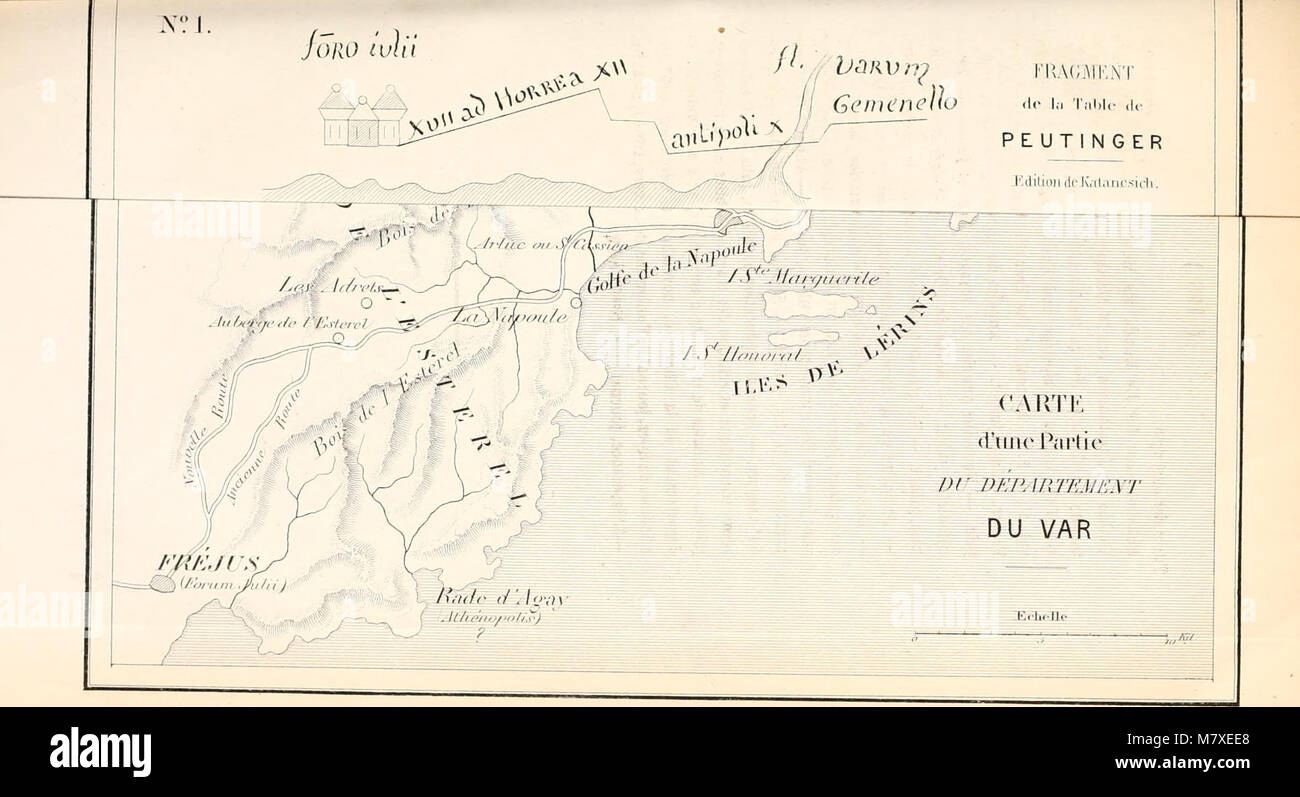 Nº 1.
fōro iulii
XVII ad HORREA XII
antipoli X
fl. VARUM
Gemenello
FRAGMENT
de la Table de
PEUTINGER
Edition de Katancsich.
Bois de
Arluc ou St Cassien
Golfe de la Napoule
I Ste Marguerite
Les Adrets
La Napoule
Auberge de l'Esterel
L'ESTEREL
I St Honorat
ILES DE LÉRINS
Bois de l'Estérel
Nouvelle Route
Ancienne Route
CARTE
d'une Partie
DU DÉPARTEMENT
DU VAR
FRÉJUS
(Forum Julii)
Rade d'Agay
(Athénopolis)
?
Echelle
0 5 10 Kil
alamy
Image ID: M7XEE8
www.alamy.com